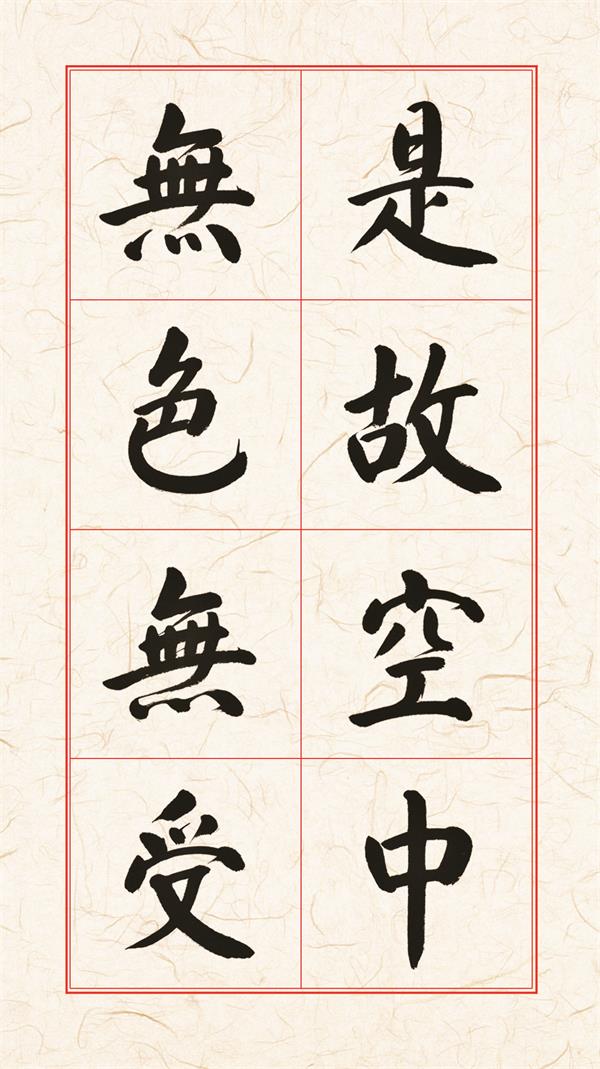 是故空中
無色無受